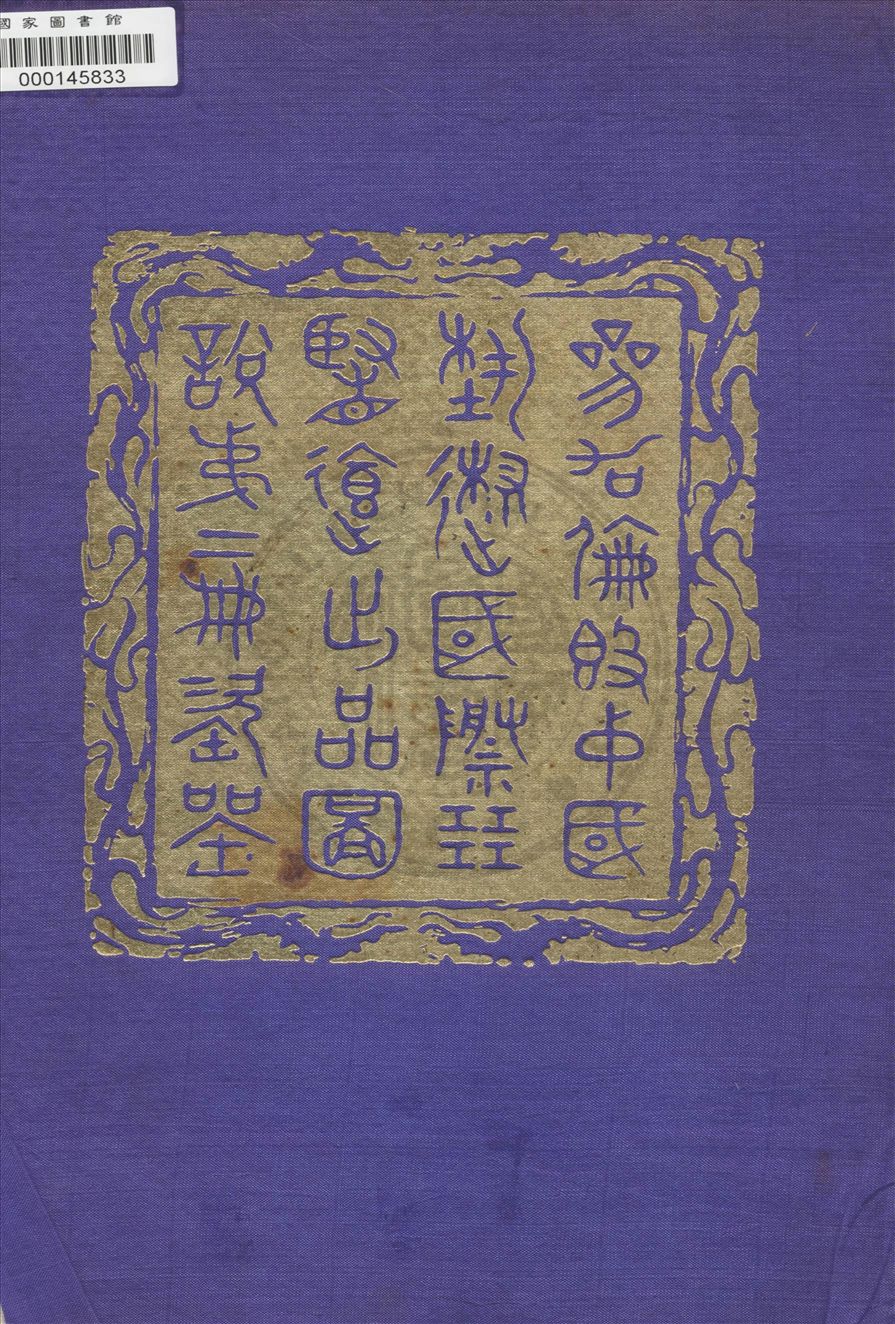 國家圖書館
000145833
參加倫敦中國
藝術國際展
覽會出品圖
說第二冊瓷器